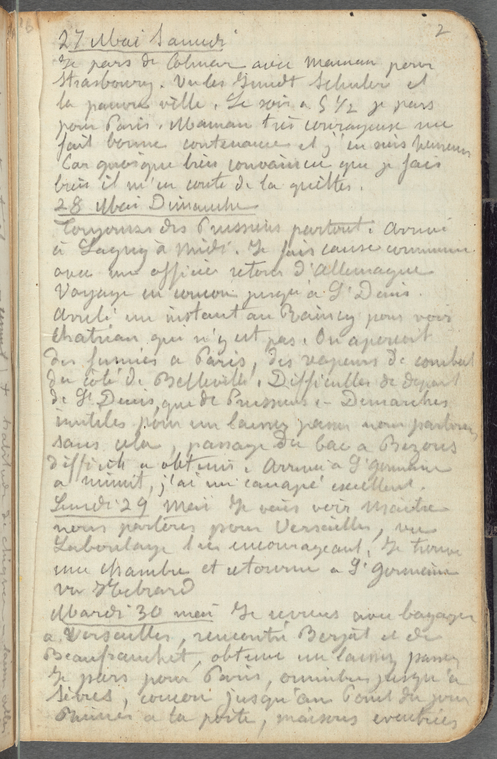 2
27 Mai Samedi
Je pars de Colmar avec Maman pour
Strasbourg. Vu les Gundt Schuler et
la pauvre ville. Le soir a 5 1/2 je pars
pour Paris. Maman très courageuse me
fait bonne contenance et j'en suis heureux
Car quoique bien convaincu que je fais
bien il m'en coute de la quitter.
28 Mai Dimanche
Toujours des Prussiens partout. Arrivé
à Lagny à midi. Je fais cause commune
avec un officier retour d'Allemagne
Voyage en coucou jusqu'à St Denis.
Arrêté un instant au Raincy pour voir
Chatrian qui n'y est pas. On aperçoit
des fumées a Paris, des vapeurs de combat
du côté de Belleville. Difficultés de départ
de St Denis, que de Prussiens - Demarches
inutiles pour un laissez passer nous partons
sans cela, passage du bac a Bezons
difficile a obtenir. Arrivé a St germain
a minuit, j'ai un canapé excellent.
Lundi 29 Mai Je vais voir Maitre
nous partons pour Versailles, vu
Laboulaye très encourageant. Je trouve
une chambre et retourne a St Germain
vu Hebrard
Mardi 30 mai Je reviens avec bagages
a Versailles, rencontré Berzat et de
Beaufranchet, obtenu un laissez passer
Je pars pour Paris, omnibus jusqu'à
Sèvres, coucou jusqu'au Pont du jour
Ruines a la porte, maisons éventrées